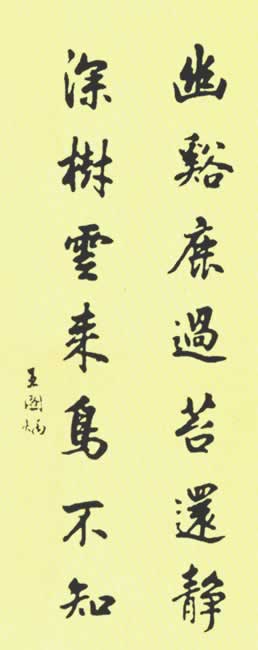 幽谿鹿過苔還静
深樹雲来鳥不知
王國